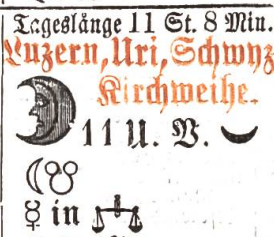 Tageslänge 11 St. 8 Min.
Luzern, Uri, Schwyz
Kirchweihe.
11 U. V.
☾☋
☿ in ♎